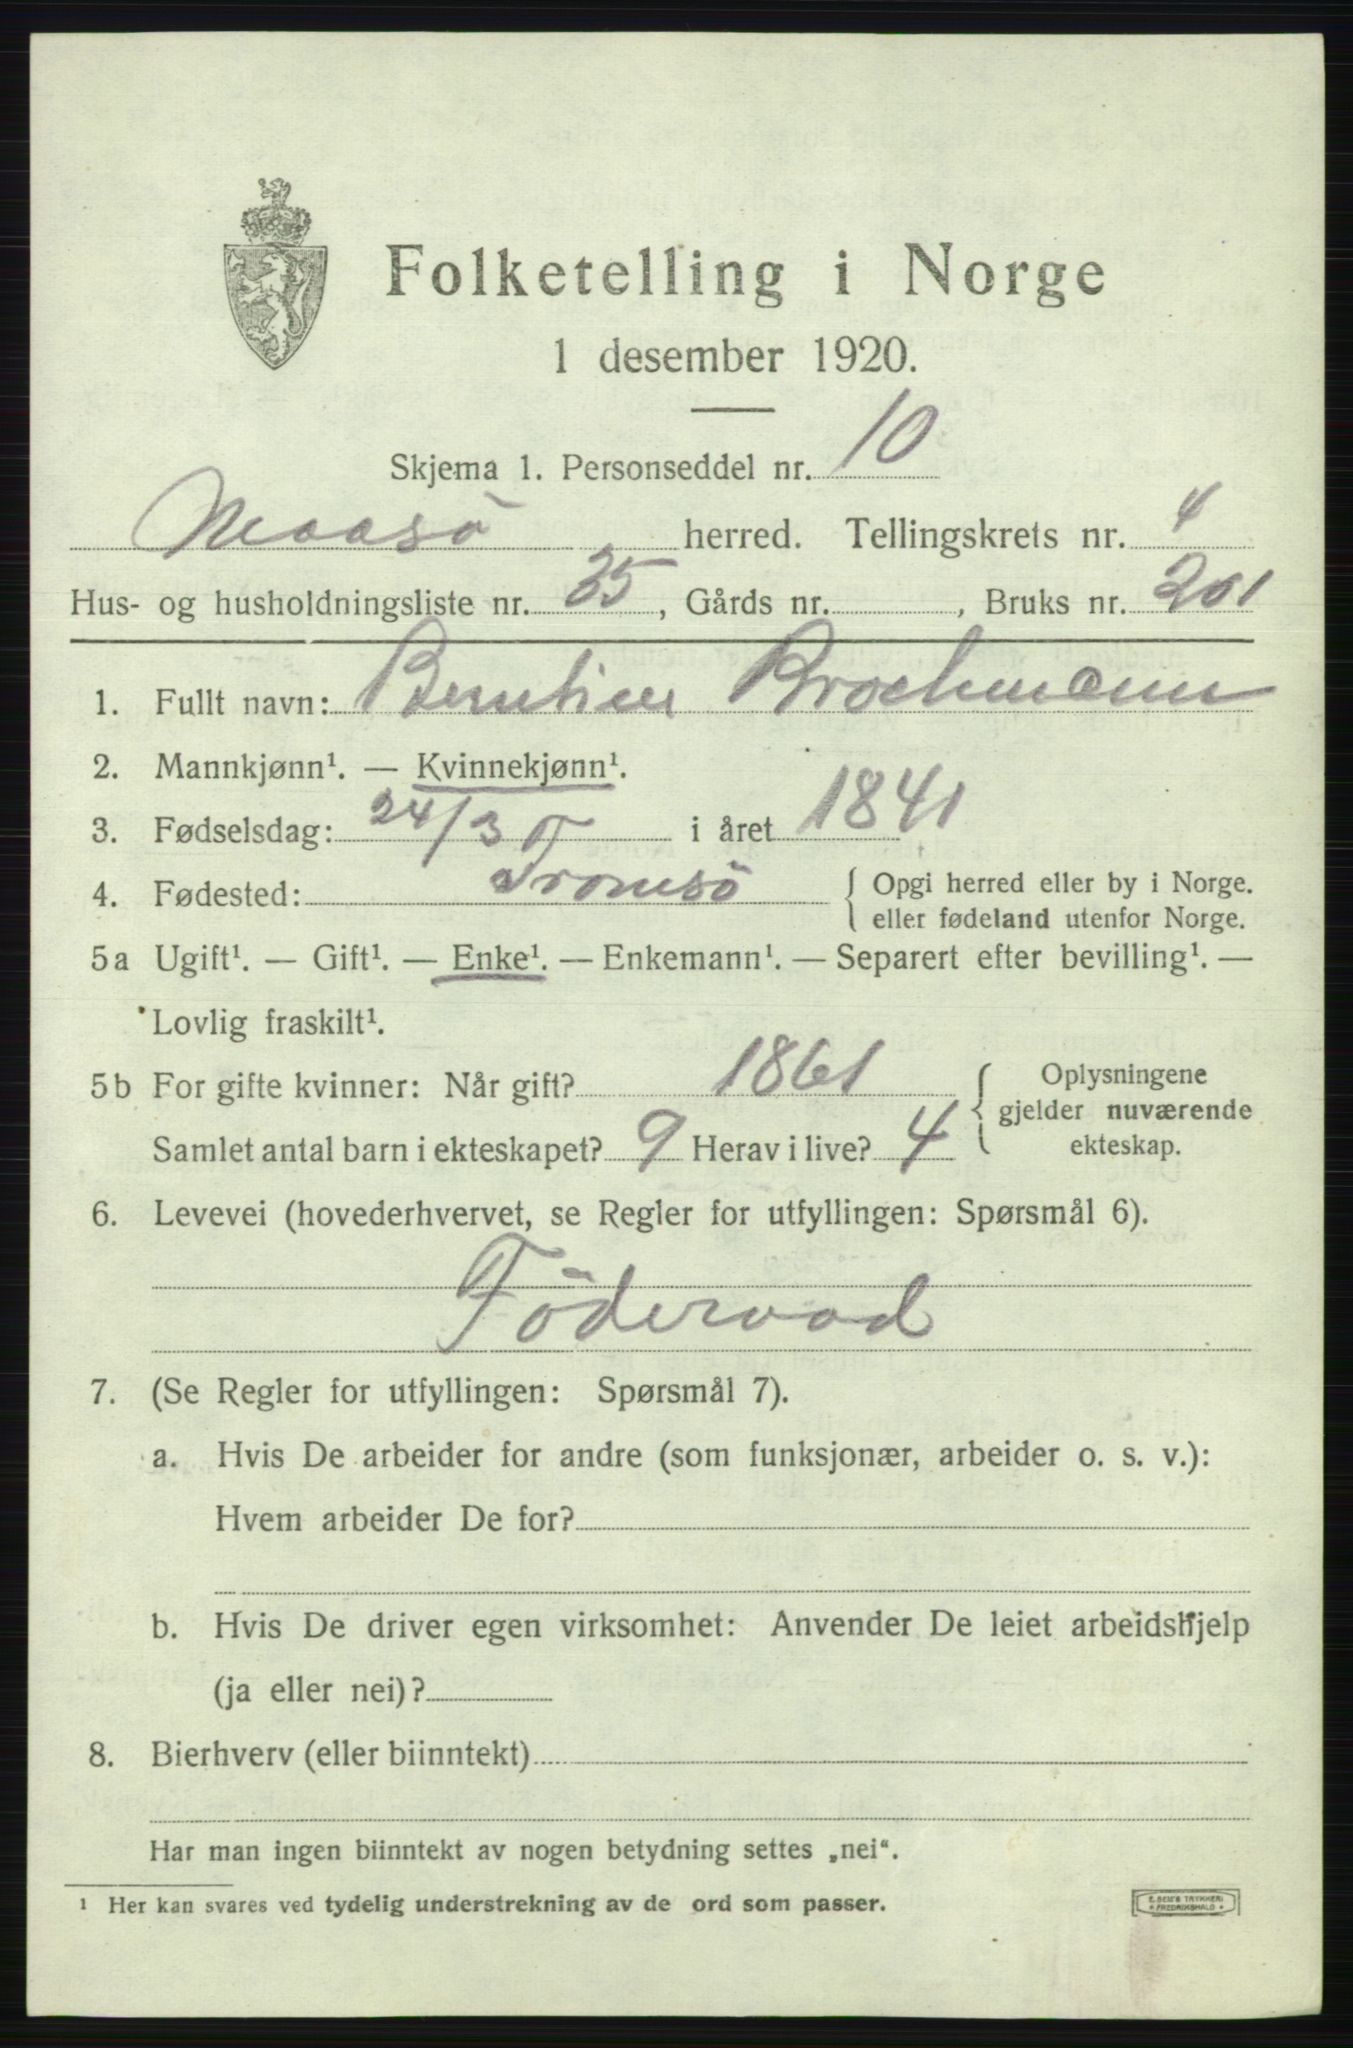 Folketelling i Norge
1 desember 1920.
Skjema 1. Personseddel nr. 10
Maasö herred. Tellingskrets nr. 4
Hus- og husholdningsliste nr. 35, Gårds nr. , Bruks nr. 201
1. Fullt navn: Brochmann
2. Mannkjønn¹. — Kvinnekjønn¹.
3. Fødselsdag: 24/3 i året 1841
4. Fødested: Tromsö { Opgi herred eller by i Norge.
eller fødeland utenfor Norge.
5a Ugift¹. — Gift¹. — Enke¹. — Enkemann¹. — Separert efter bevilling¹. —
Lovlig fraskilt¹.
5b For gifte kvinner: Når gift? 1861 { Oplysningene
gjelder nuværende
ekteskap.
Samlet antal barn i ekteskapet? 9 Herav i live? 4
6. Levevei (hovederhvervet, se Regler for utfyllingen: Spørsmål 6).
Föderaad
7. (Se Regler for utfyllingen: Spørsmål 7).
a. Hvis De arbeider for andre (som funksjonær, arbeider o. s. v.):
Hvem arbeider De for?
b. Hvis De driver egen virksomhet: Anvender De leiet arbeidshjelp
(ja eller nei)?
8. Bierhverv (eller biinntekt)
Har man ingen biinntekt av nogen betydning settes „nei“.
¹ Her kan svares ved tydelig understrekning av de ord som passer.
E. SEM'S TRYKKERI
* FREDRIKSHALD *